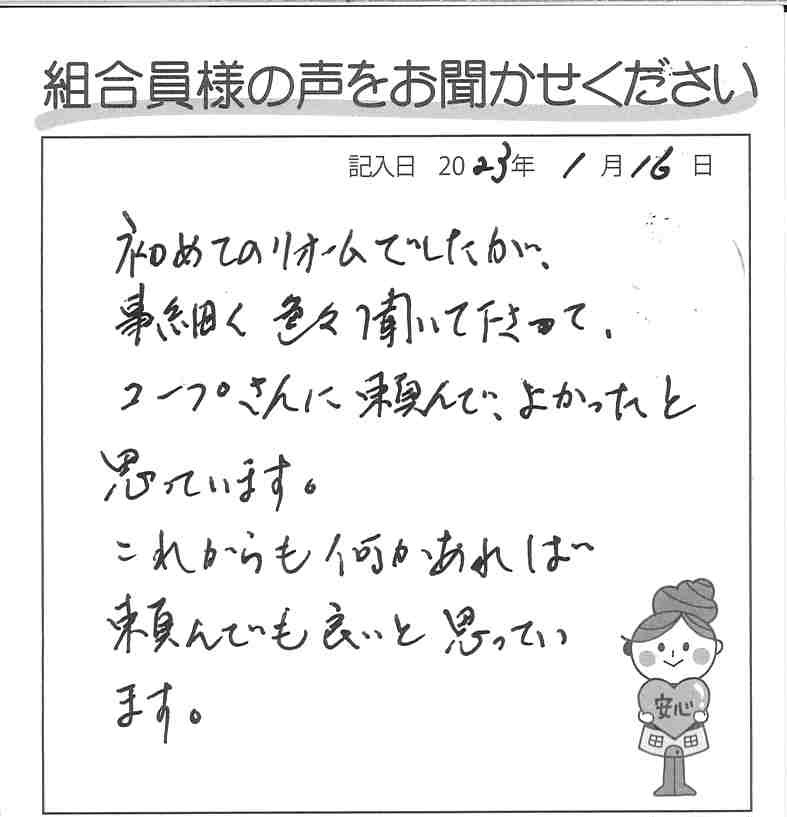 組合員様の声をお聞かせください
記入日 2023年 1月16日
初めてのリホームでしたが、
事細く 色々聞いて下さって、
コープさんに 頼んで、よかったと
思っています。
これからも 何かあれば
頼んでも 良いと 思ってい
ます。
安心